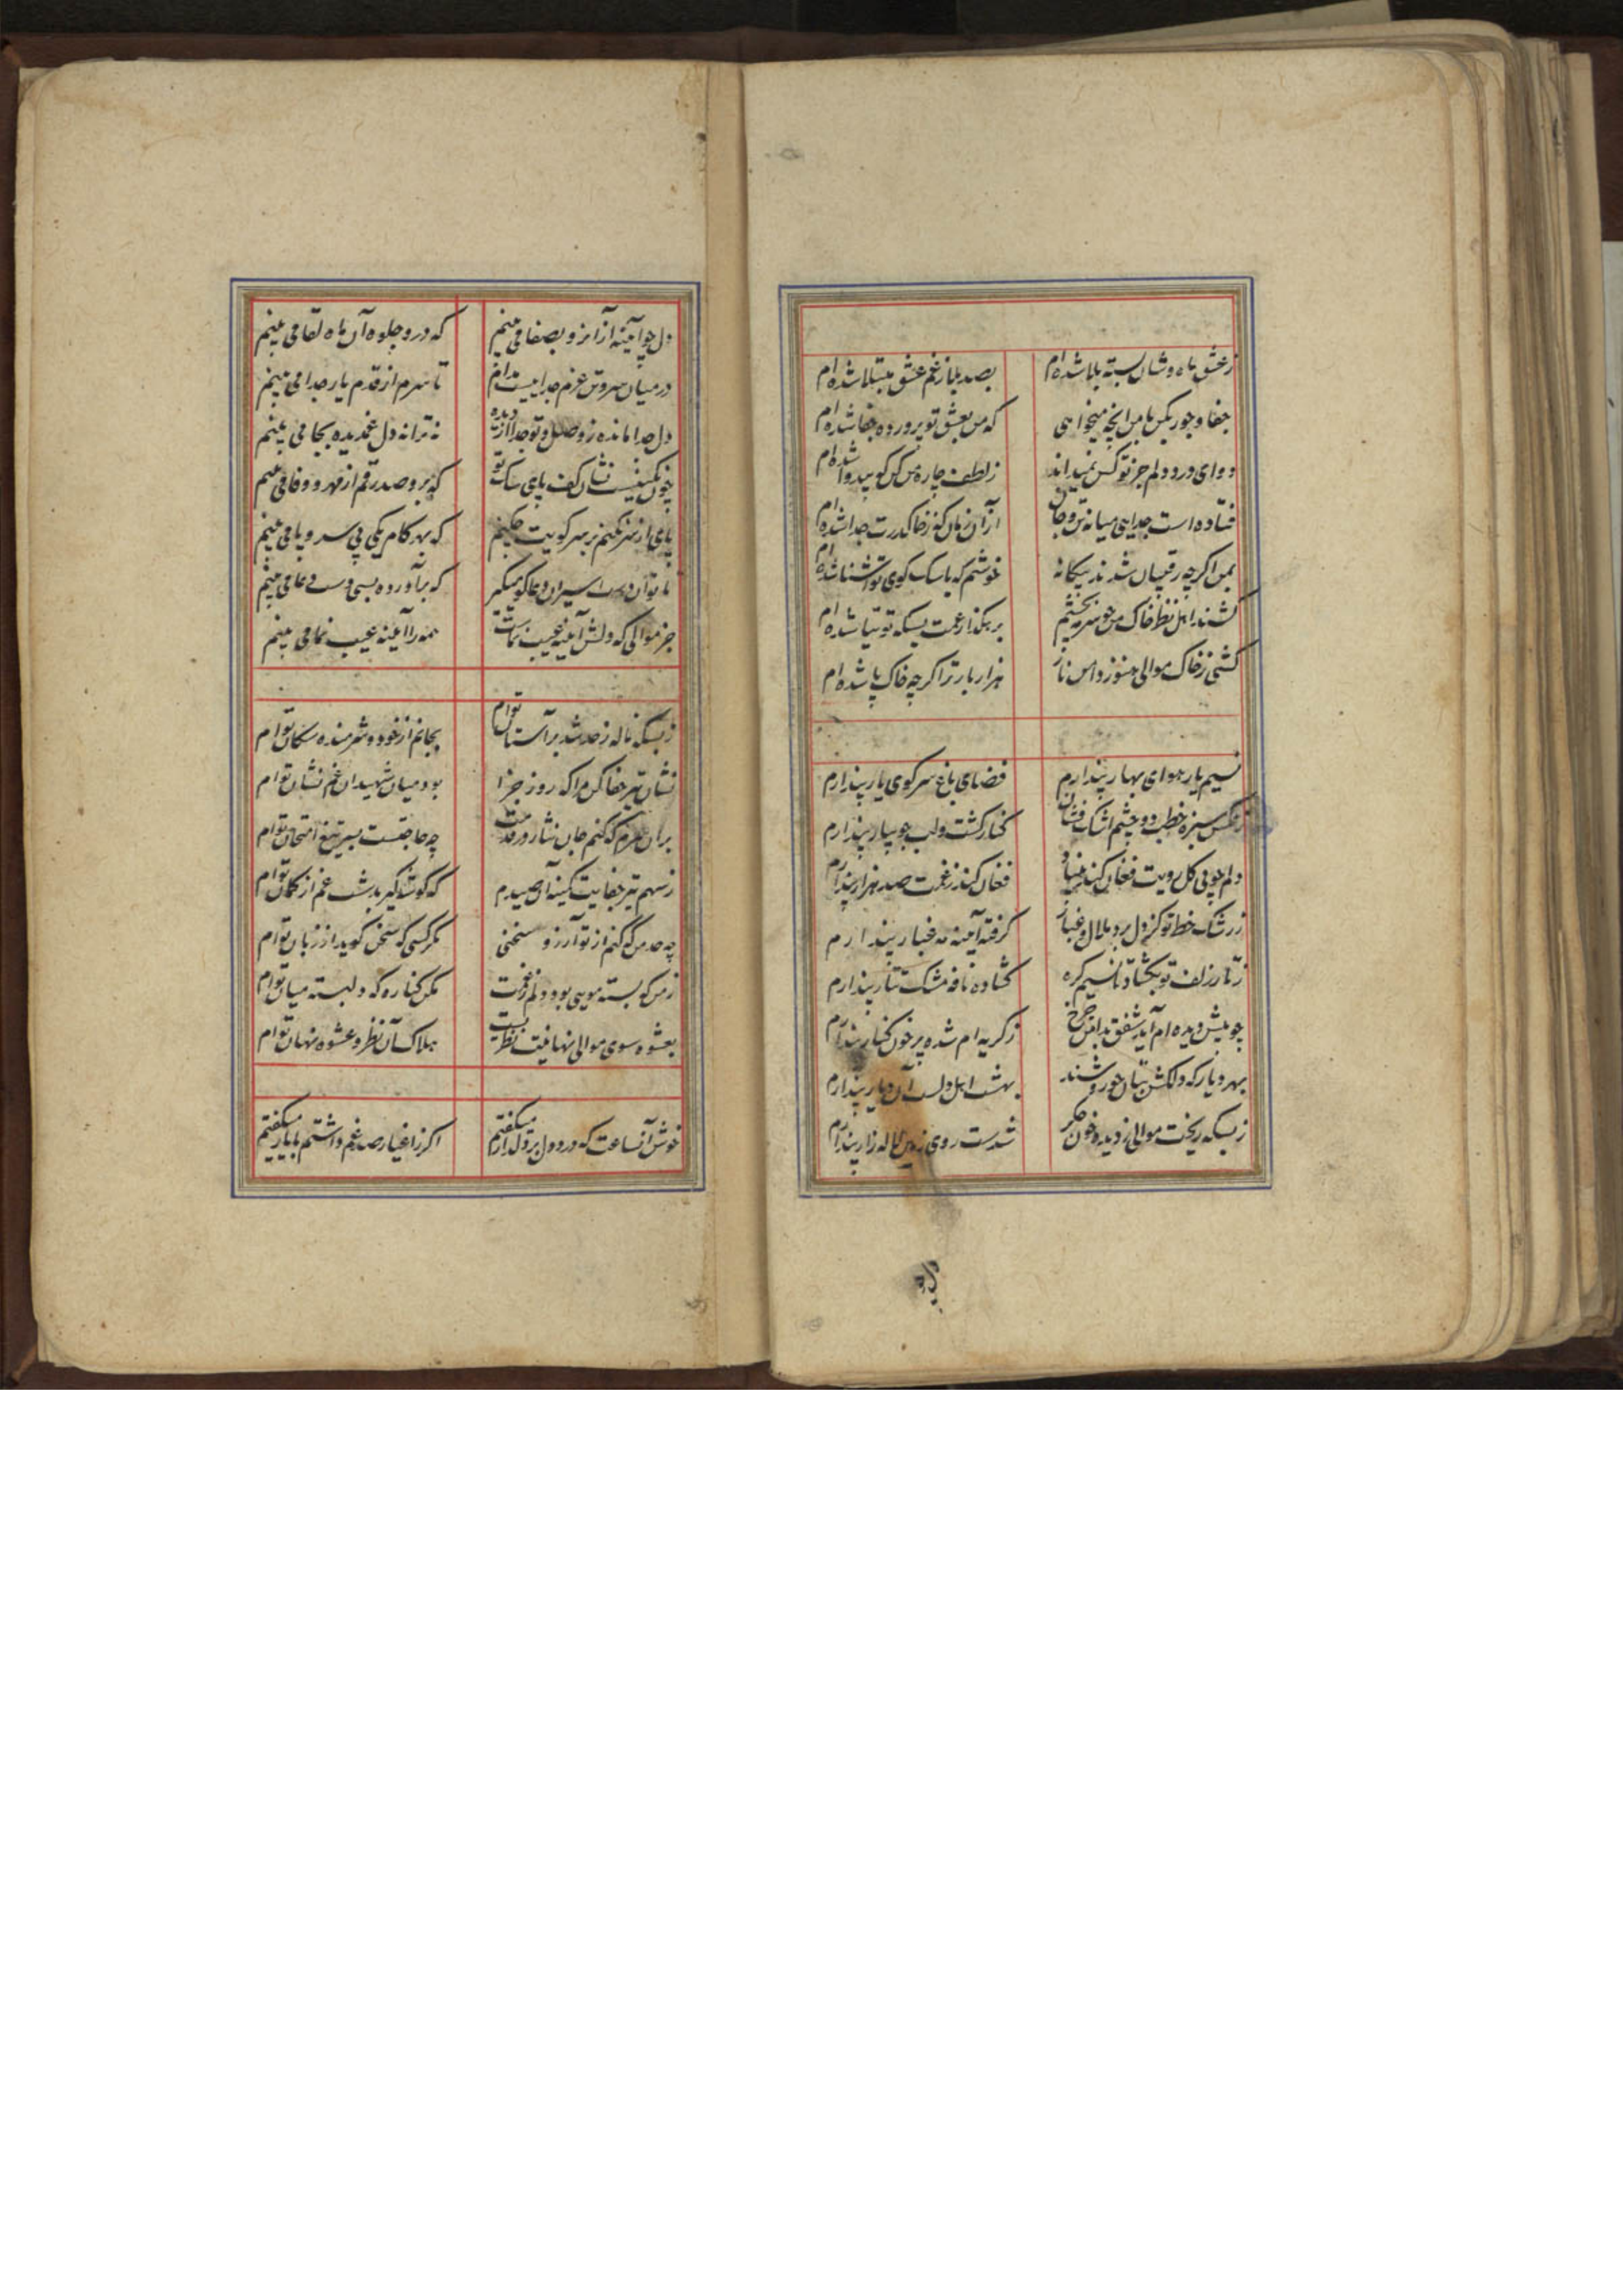 ز عشق ماه وشان بسته بلا شده ام
بصد بلا ز غم عشق مبتلا شده ام
جفا و جور بکن با من آنچه میخواهی
که من بعشق تو پرورده جفا شده ام
دوای درد دلم جز تو کس نمیداند
ز لطف چاره من کن که بیدوا شده ام
فتاده است جدایی میانه تن و جان
از آن زمان که ز خاک درت جدا شده ام
بمن اگرچه رقیبان شدند بیگانه
خوشم که با سگ کوی تو آشنا شده ام
کشند اهل نظر خاک من چو سرمه بچشم
بر هگذار غمت بسکه توتیا شده ام
کشی ز خاک موالی هنوز دامن ناز
هزار بار ترا گرچه خاک پا شده ام
نسیم یار هوای بهار پندارم
فضای باغ سر کوی یار پندارم
سبزه خطت و دو چشم اشک فشان
کنار کشت و لب جویبار پندارم
دلم چو بی گل رویت فغان کند بنیاد
فغان کند ز غمت صد هزار پندارم
ز رشک خط تو کز دل برد ملال و غبار
گرفته آینه مه غبار پندارم
ز تار زلف تو بگشاد تا نسیم گره
گشاده نافه مشک تتار پندارم
چو پیش دیده ام آید شفق بدامن چرخ
ز گریه ام شده پر خون کنار پندارم
بهر دیار که دلکش بتان حور وشند
بهشت اهل دلست آن دیار پندارم
ز بسکه ریخت موالی ز دیده خون جگر
شدست روی زمین لاله زار پندارم
دل چو
دل چو آیینه از آنرو بصفا می بینم
که درو جلوه آن ماه لقا می بینم
در میان سروتن عزم جداییست مدام
تا سرم از قدم یار جدا می بینم
دل جدا مانده ز وصل و تو جدا از دیده
نه ترا نه دل غمدیده بجا می بینم
چون نگینیست نشان کف پای سگ تو
که برو صد رقم از مهر و وفا می بینم
پای از سر نکنم بر سر کویت چکنم
که بهر کام یکی بی سر و پا می بینم
اسیران دعاگو میگیر
که برآورده بسی دست دعا می بینم
جز موالی که دلش آینه عیب نماست
همه را آینه عیب نما می بینم
ز بسکه ناله ز حد شد بر آستان توام
بجانم از خود و شرمنده سگان توام
نشان تیر جفا کن مرا که روز جزا
بود میان شهیدان غم نشان توام
بران سرم که کنم جان نثار در قدمت
چه حاجتست به تیغ امتحان توام
ز سهم تیر جفایت کینه آهی میدم
که گوشه گیر شب غم از کمان توام
چه حد من که کنم از تو آرزو سخنی
مگر کسی که سخن گوید از زبان توام
ز من که بسته مویی بود دلم ز غمت
مکن کناره که دلبسته میان توام
بعشوه سوی موالی نهانیت نظریست
هلاک آن نظر و عشوه نهان توام
خوش آنساعت که درد دل بر دلدار میگفتم
اگر ز اغیار صد غم داشتم با یار میگفتم